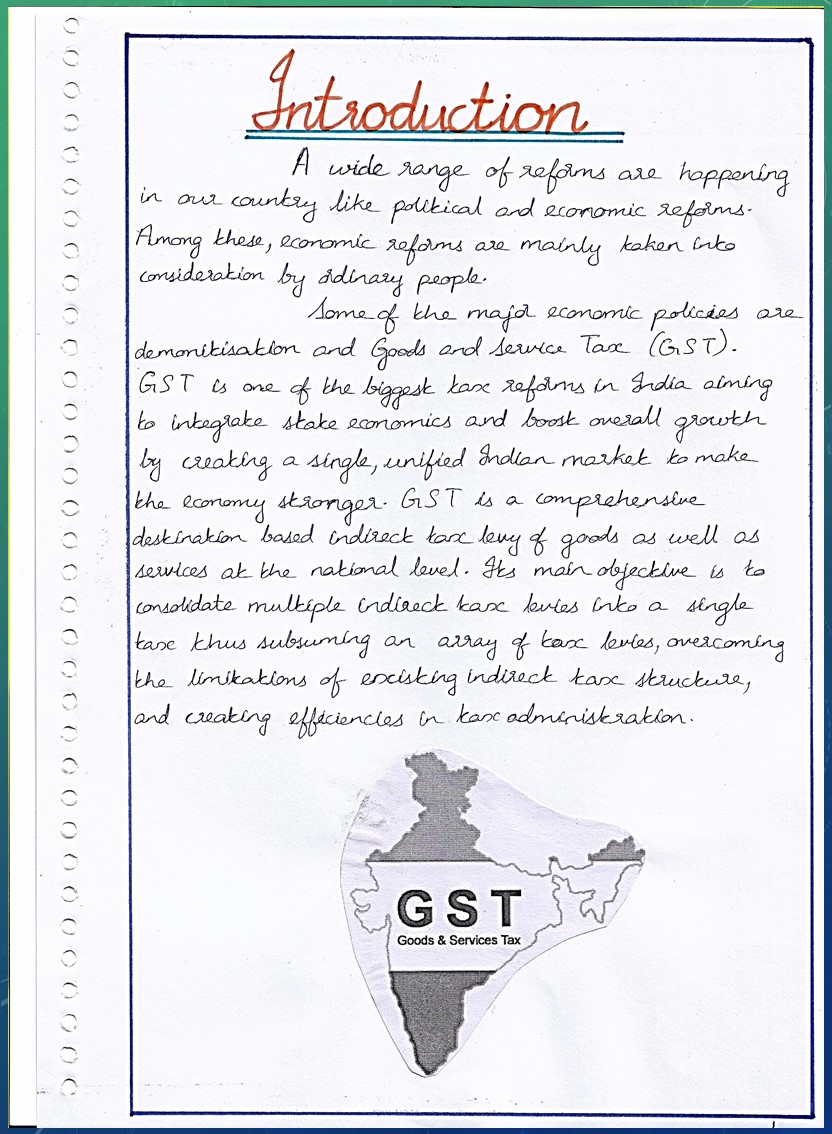 Introduction
A wide range of reforms are happening
in our country like political and economic reforms.
Among these, economic reforms are mainly taken into
consideration by ordinary people.
Some of the major economic policies are
demonitisation and Goods and Service Tax (GST).
GST is one of the biggest tax reforms in India aiming
to integrate state economics and boost overall growth
by creating a single, unified Indian market to make
the economy stronger. GST is a comprehensive
destination based indirect tax levy of goods as well as
services at the national level. Its main objective is to
consolidate multiple indirect tax levies into a single
tax thus subsuming an array of tax levies, overcoming
the limitations of existing indirect tax structure,
and creating efficiencies in tax administration.
GST
Goods & Services Tax